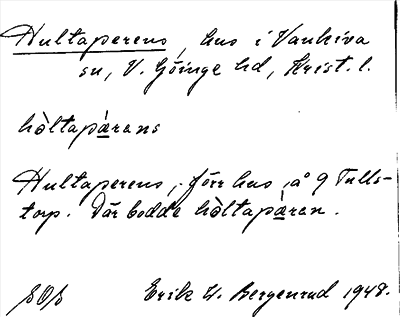 Hultaperens, hus i Vankiva
sn, V. Göinge hd, Krist. l.
hòltapæ̀rens
Hultaperens, förr hus å 9 Tulls-
torp. Där bodde hòltapæ̀ren.
Erik W. Bergenrud 1948.